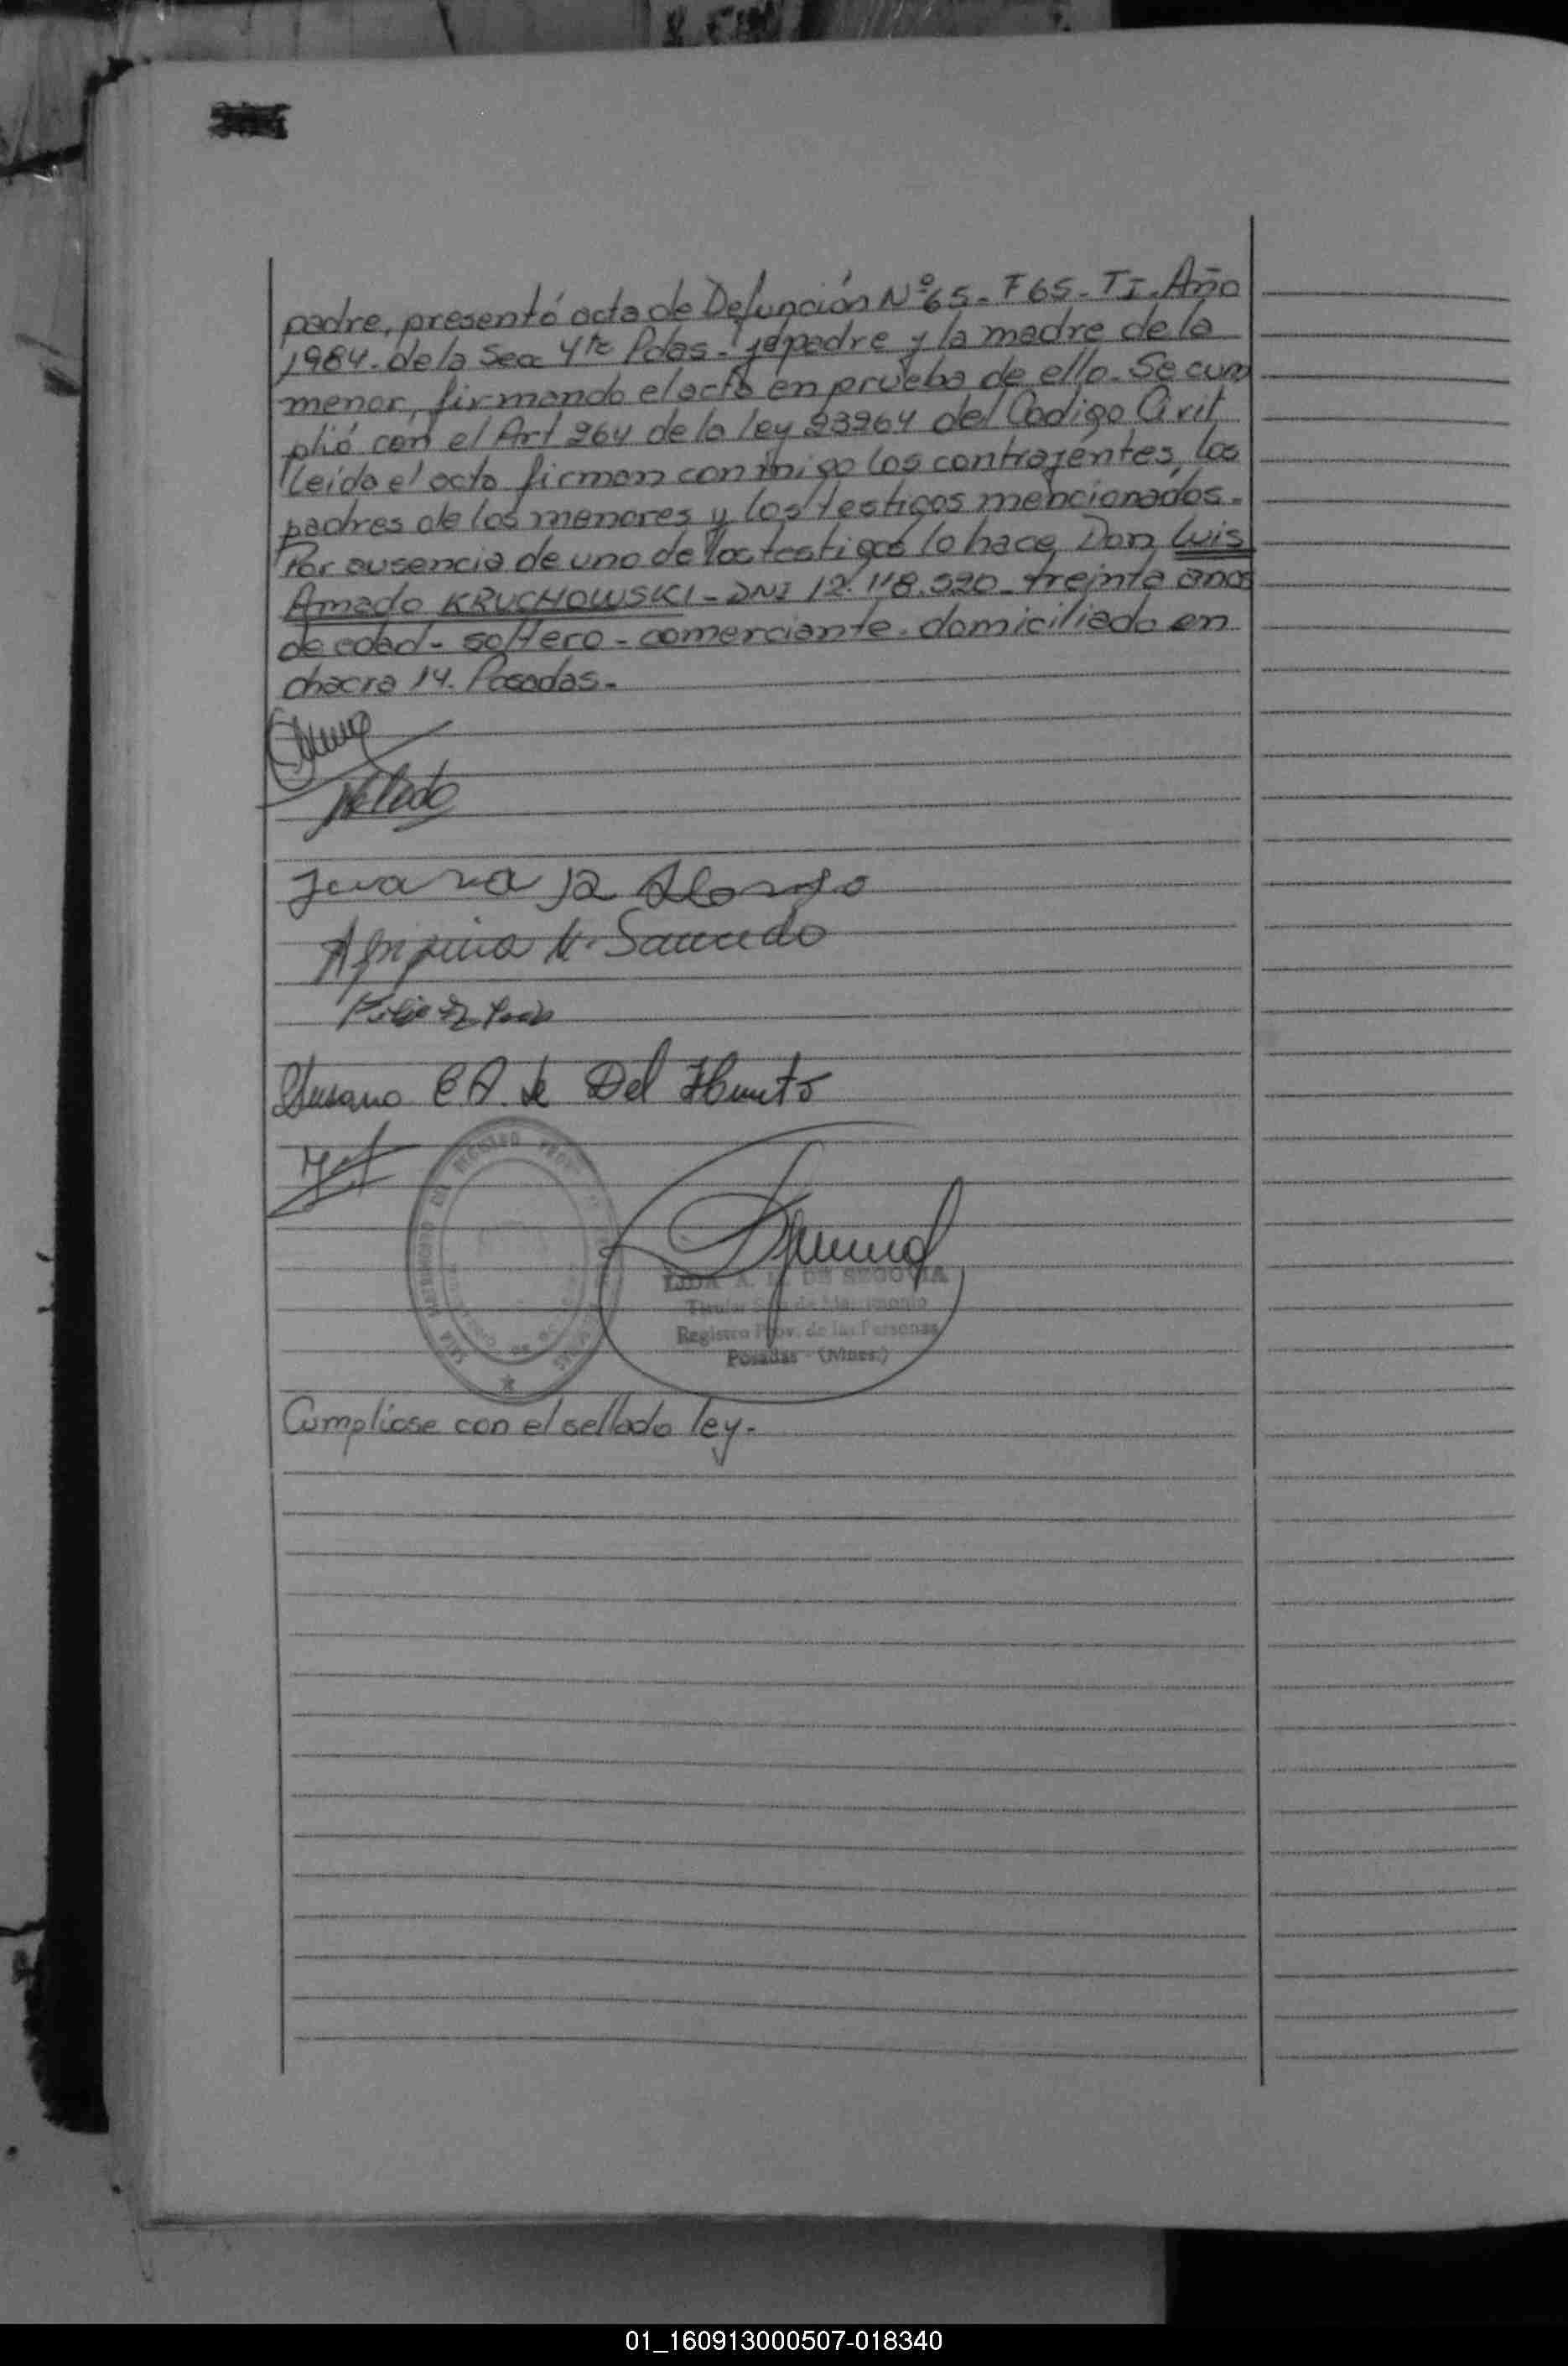 padre, presentó acta de Defunción Nº65- F65- TI. Año
1984. de la Secc 4ta Pdas. y el padre y la madre de la
menor, firmando el acta en prueba de ello. Se cum
plió con el Art 264 de la ley 23264 del Codigo Civil
Leída el acta firman conmigo los contrayentes, los
padres de los menores y los testigos mencionados.
Por ausencia de uno de los testigos lo hace Don Luis
Amado KRUCHOWSKI - DNI 12.118.520 - treinta años
de edad - soltero - comerciante - domiciliado en
chacra 14. Posadas.
Juana R Alonso
A. Saucedo
Susana E.A. de Del
DE SEGOVIA
Titular de Matrimonio
Registro Prov. de las Personas
Posadas - (Mnes.)
Cumpliose con el sellado ley.
01_160913000507-018340